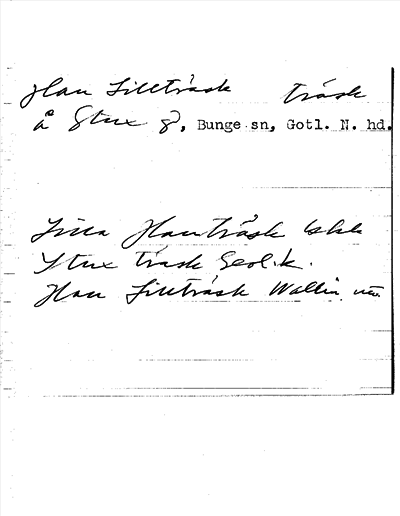 Hau Lillträsk träsk
å Stux 8, Bunge sn, Gotl. N. hd.
Lilla Hauträsk
Stux träsk Geol.k.
Hau Lillträsk Wallin